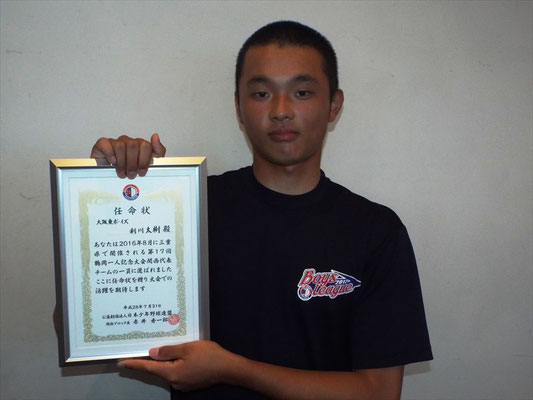 任命状
大阪東ボーイズ
利川大樹 殿
あなたは2016年8月に三重
県で開催される第17回
鶴岡一人記念大会関西代表
チームの一員に選ばれました
ここに任命状を贈り大会での
活躍を期待します
平成28年7月31日
公益財団法人日本少年野球連盟
Boys
League